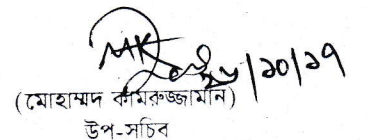 /১০/১৭
(মোহাম্মদ কামরুজ্জামান)
উপ-সচিব